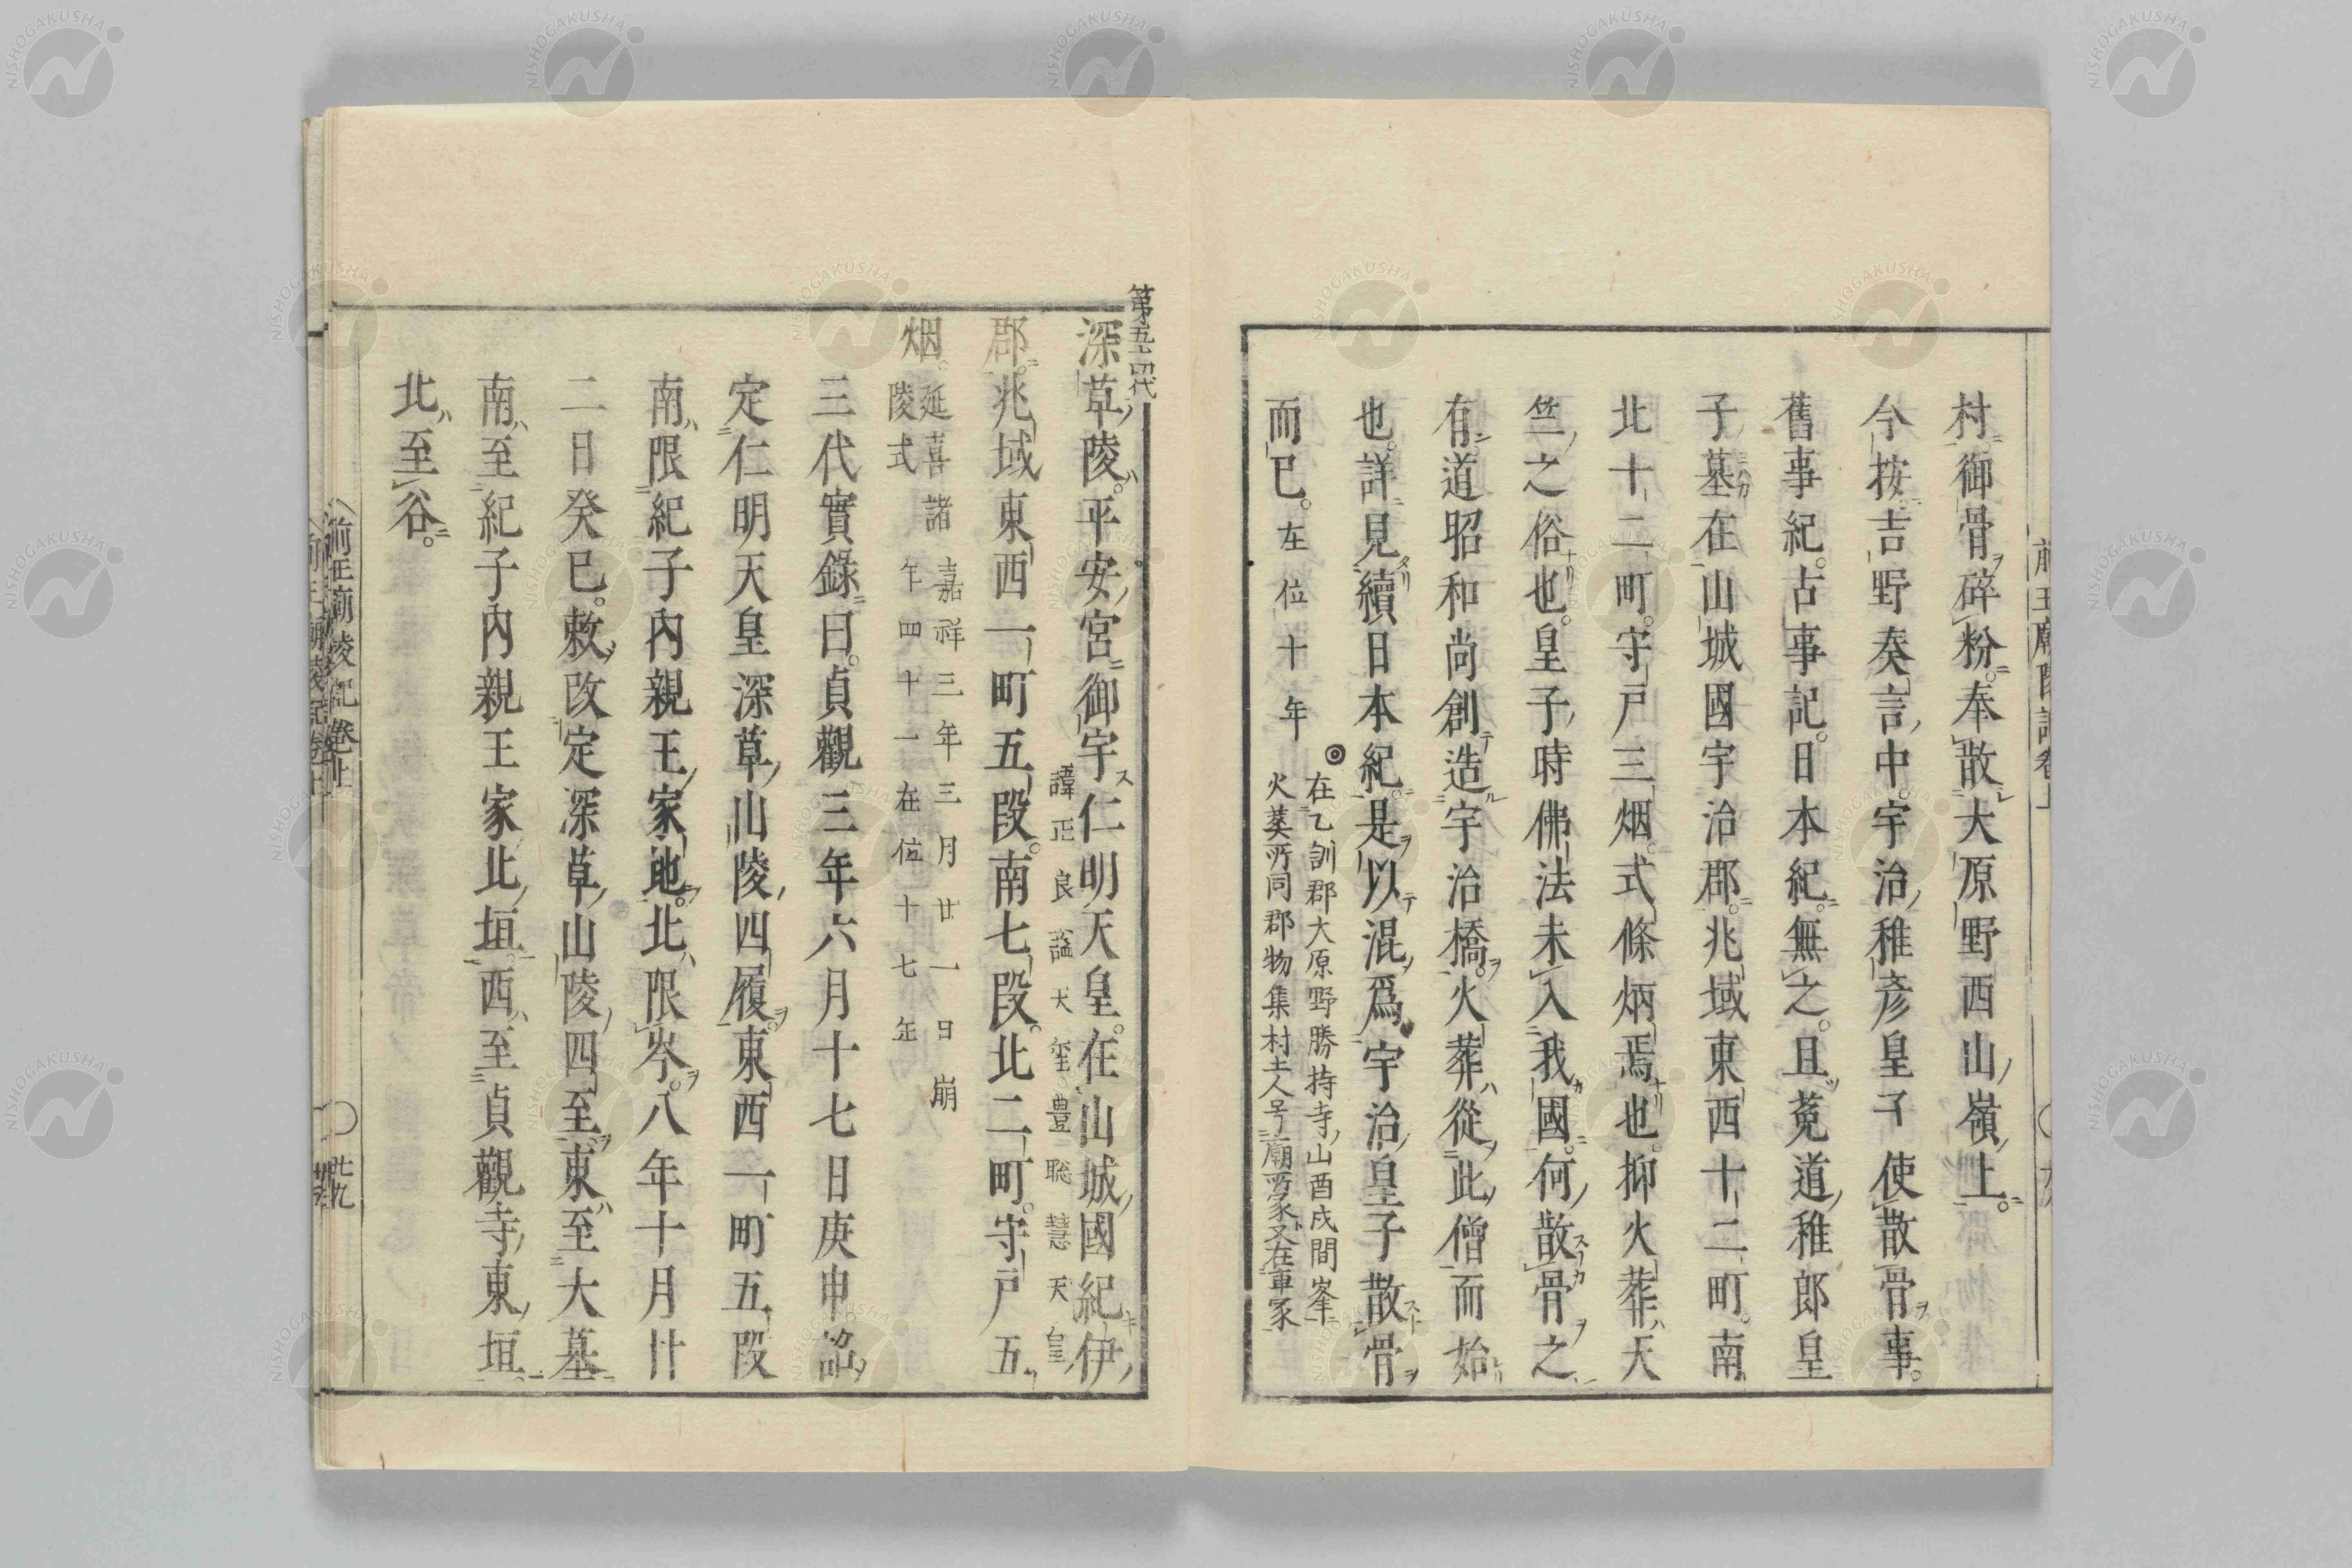 村御骨碎粉。奉散大原野西山嶺上。
今按吉野奏言中。宇治稚彦皇子使散骨事。
舊事紀。古事記。日本紀。無之。且菟道稚郎皇
子墓在山城國宇治郡。兆域東西十二町。南
北十二町。守戸三烟。式條炳焉也。抑火葬天
竺之俗也。皇子時佛法未入我國。何散骨之
有。道昭和尚創造宇治橋。火葬從此僧而始
也。詳見續日本紀。是以混爲宇治皇子散骨
而已。在位十年
◎在乙訓郡大原野勝持寺山酉戌間峯
火葬所同郡物集村土人号廟所冢又在車冢
第五十四代
深草陵。平安宮御宇仁明天皇。在山城國紀伊
諱正良謚天璽豊聡慧天皇
郡。兆域東西一町五段。南七段。北二町。守戸五
烟。延喜諸陵式
嘉祥三年三月廿一日崩
年四十一在位十七年
三代實錄曰。貞觀三年六月十七日庚申詔
定仁明天皇深草山陵四履。東西一町五段
南限紀子內親王家地。北限岑。八年十月廿
二日癸巳。敕改定深草山陵四至。東至大墓
南至紀子內親王家北垣。西至貞觀寺東垣。
北至谷。
前王廟陵記卷上
〇
廿九